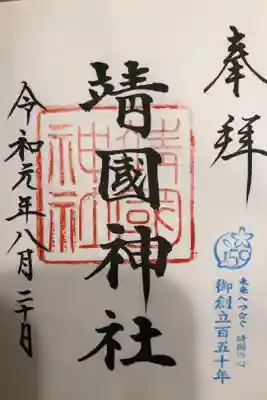 奉拝
150
未来へつなぐ 靖國の心
御創立百五十年
靖國神社
靖國神社
令和元年八月二十日